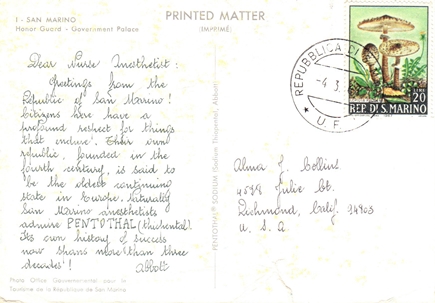 1 - SAN MARINO
Honor Guard - Government Palace
PRINTED MATTER
(IMPRIMÉ)
Dear Nurse Anesthetist:
Greetings from the
Republic of San Marino!
Citizens here have a
profound respect for things
that endure. Their own
republic, founded in the
fourth century, is said to
be the oldest continuing
state in Europe. Naturally
San Marino anesthetists
admire PENTOTHAL (thiopental).
Its own history of success
now spans more than three
decades!
Abbott
Photo Office Gouvernemental pour le
Tourisme de la République de San Marino
PENTOTHAL® SODIUM (Sodium Thiopental, Abbott)
REPUBBLICA DI
-4. 3.
U. F.
LIRE
20
REP. DI S. MARINO
1967
Alma J. Collins
4538 Julie Ct.
Richmond, Calif. 94803
U. S. A.